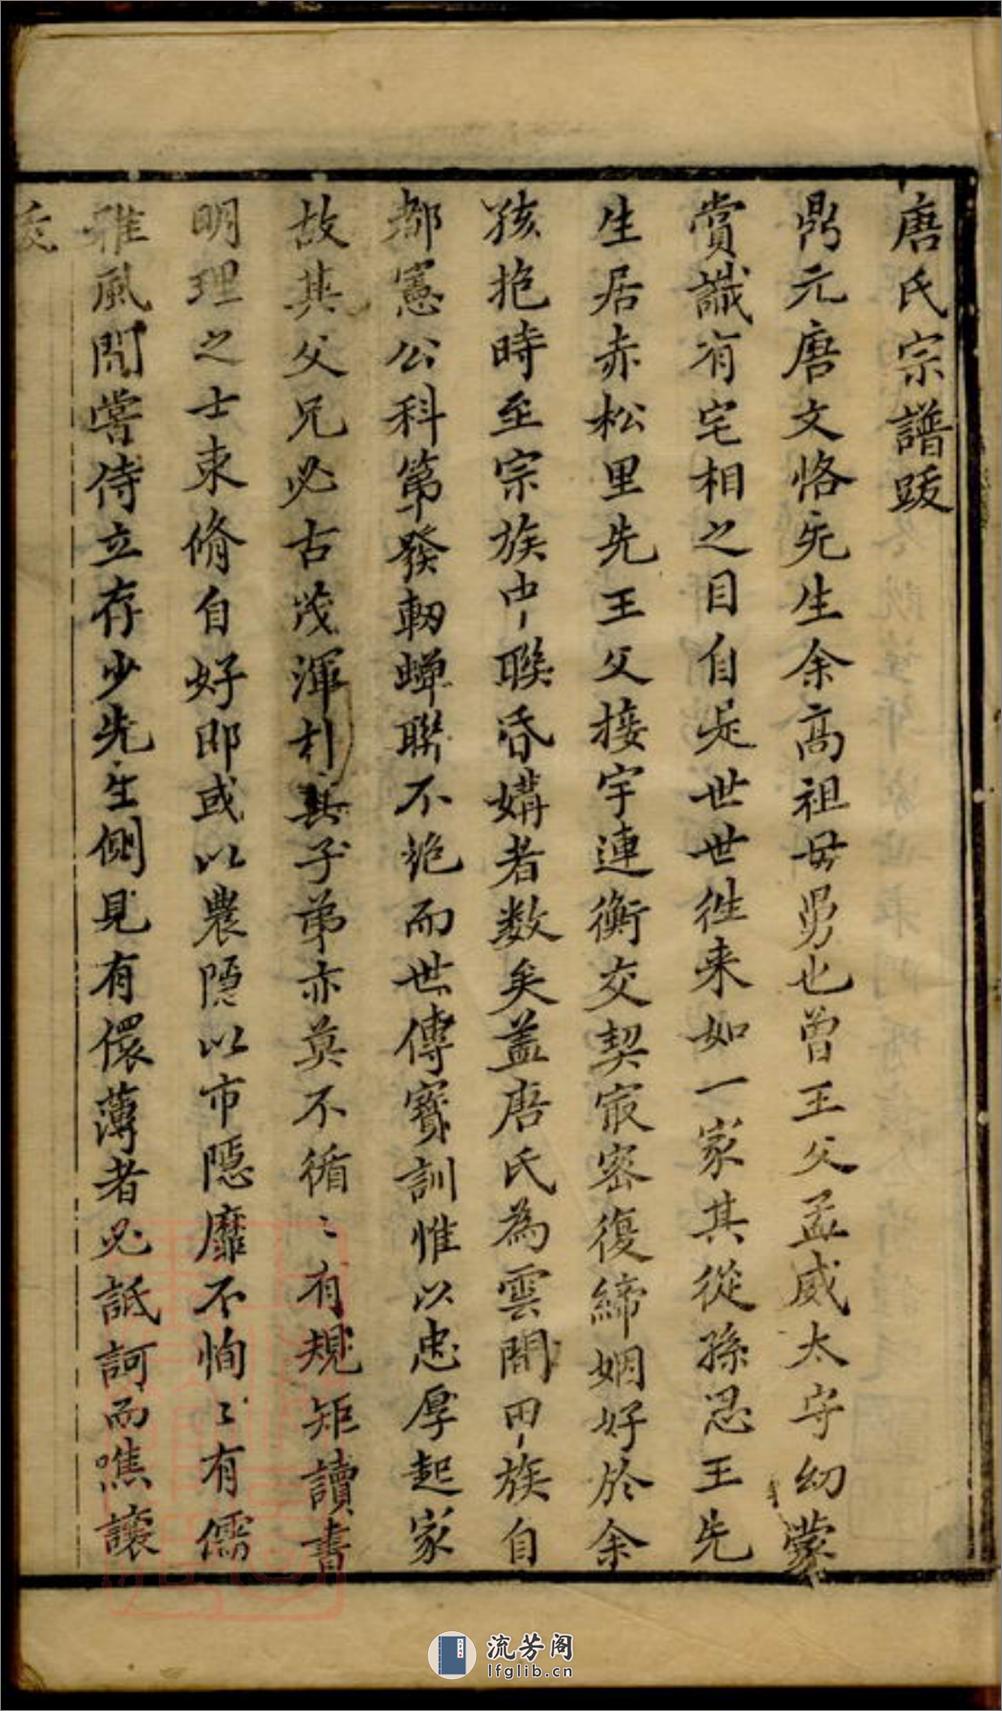 唐氏宗譜跋
鼎元唐文恪先生余高祖母舅也曾王父孟威太守幼蒙
賞識有宅相之目自是世世徃来如一家其從孫忍王先
生居赤松里先王父接宇連衡交契冣密復締姻好於余
孩抱時至宗族中聯昏媾者数矣盖唐氏為雲間甲族自
都憲公科第發軔蝉聯不絶而世傳寳訓惟以忠厚起家
故其父兄必古茂渾朴其子弟亦莫不循〻有規矩讀書
明理之士束脩自好即或以農隠以市隠靡不恂〻有儒
雅風間嘗侍立存少先生側見有儇薄者必詆訶而噍讓
流芳阁
lfglib.cn